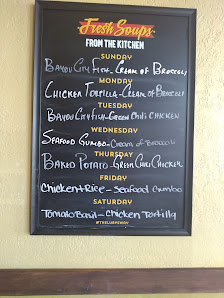 Fresh Soups
FROM THE KITCHEN
SUNDAY
Bayou City Fish - Cream of Broccoli
MONDAY
Chicken Tortilla - Cream of Broccoli
TUESDAY
Bayou City Fish - Green Chili Chicken
WEDNESDAY
Seafood Gumbo - Cream of Broccoli
THURSDAY
Baked Potato - Green Chili Chicken
FRIDAY
Chicken + Rice - Seafood Gumbo
SATURDAY
Tomato Basil - Chicken Tortilla